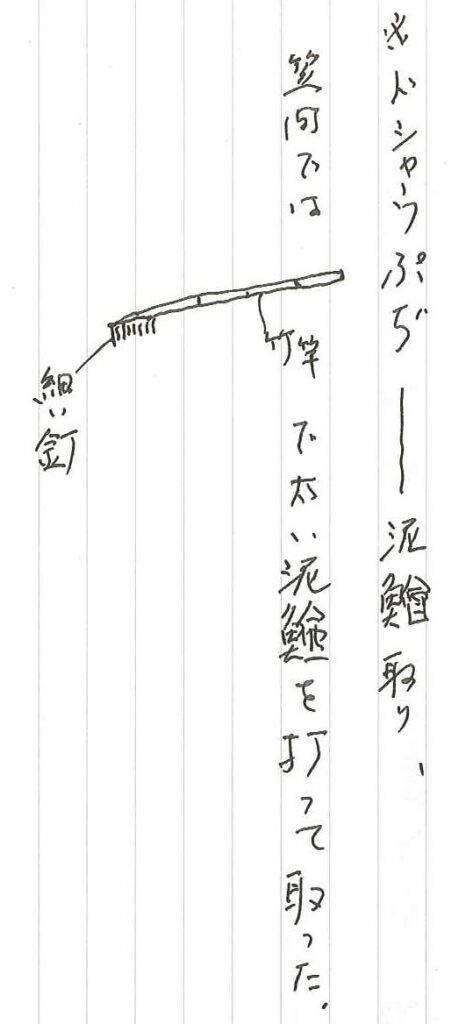 ※ドシャウぷぢ――泥鰌取り、
笠間では
竹竿
で太い泥鰌を打って取った.
細い釘